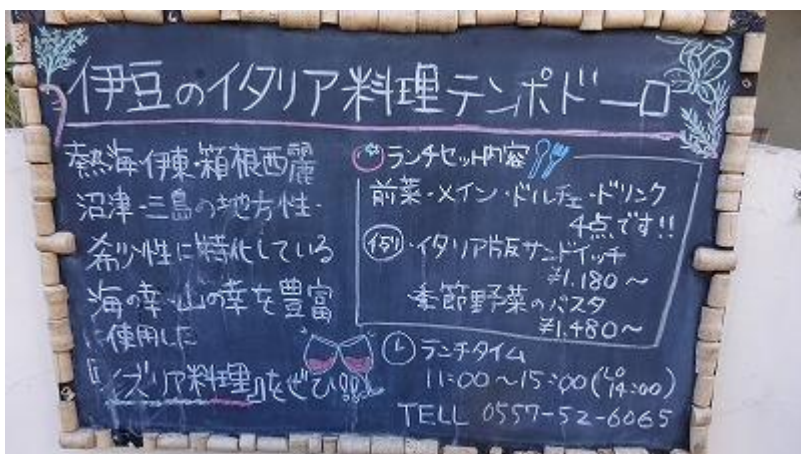 伊豆のイタリア料理テンポドーロ
熱海・伊東・箱根西麗
沼津・三島の地方性・
希少性に特化している
海の幸・山の幸を豊富
に使用した
『イズリア料理』をぜひ!!
ランチセット内容
前菜・メイン・ドルチェ・ドリンク
4点です!!
例)・イタリア版サンドイッチ
¥1.180～
季節野菜のパスタ
¥1.480～
ランチタイム
11:00～15:00(LO 14:00)
TELL 0557-52-6065